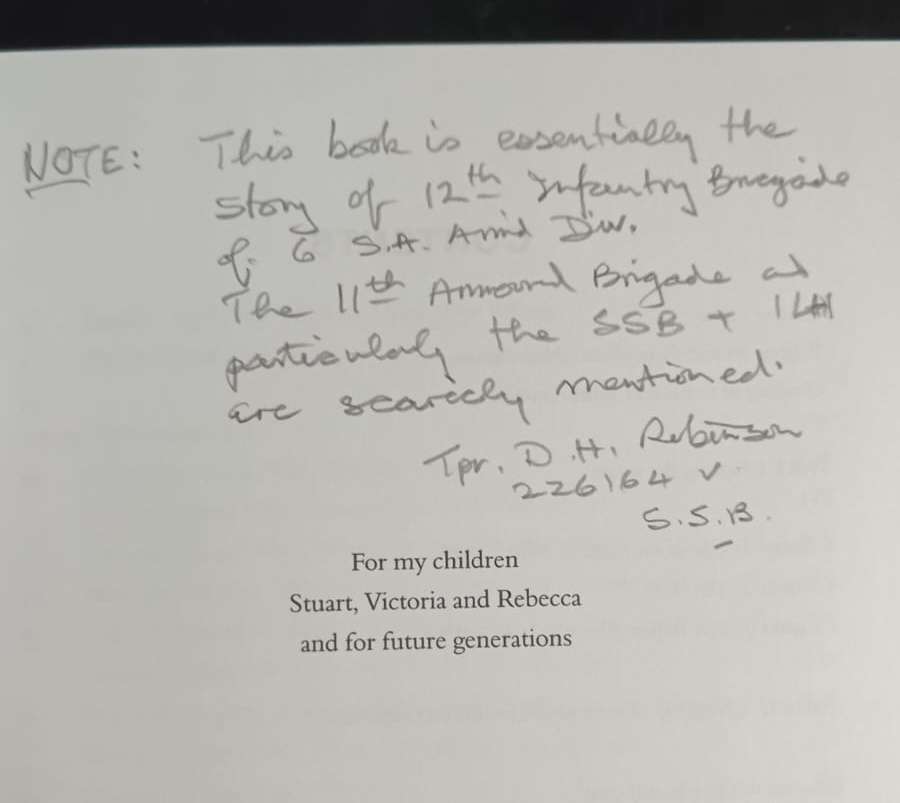 NOTE: This book is essentially the
story of 12th Infantry Brigade
of 6 S.A. Armd Div.
The 11th Armoured Brigade and
particularly the SSB + ILH
are scarcely mentioned.
Tpr. D.H. Robinson
226164 V
S.S.B.
For my children
Stuart, Victoria and Rebecca
and for future generations